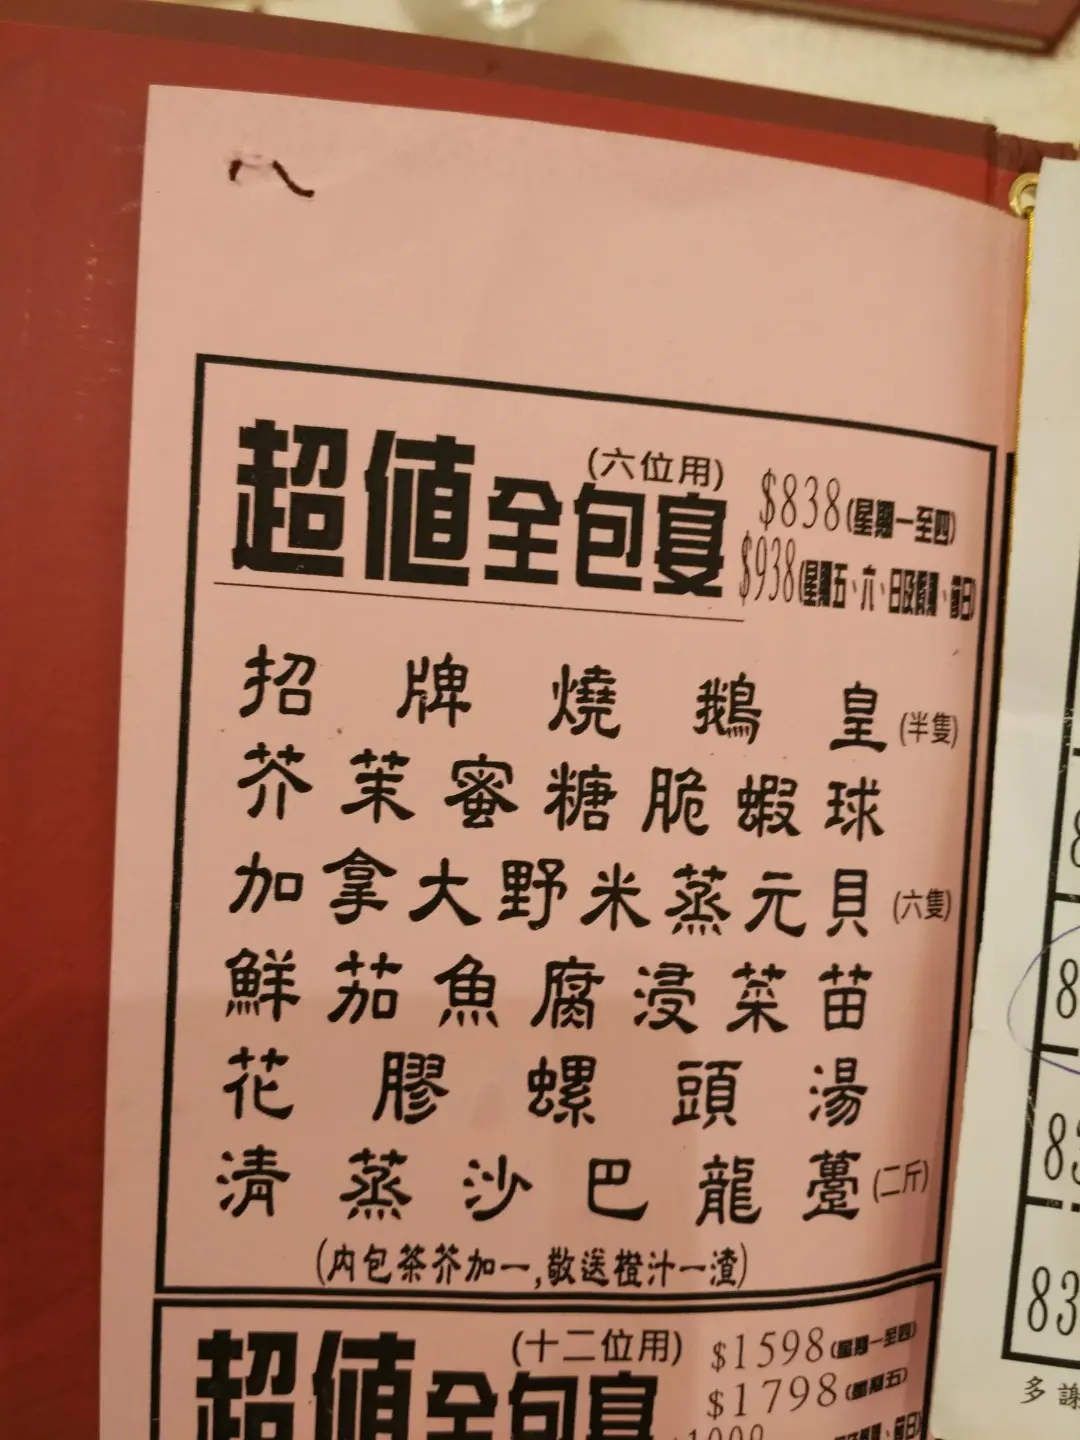 超值全包宴 (六位用) $838(星期一至四)
$938(星期五、六、日及假期、節日)
招牌燒鵝皇(半隻)
芥茉蜜糖脆蝦球
加拿大野米蒸元貝(六隻)
鮮茄魚腐浸菜苗
花膠螺頭湯
清蒸沙巴龍躉(二斤)
(內包茶芥加一,敬送橙汁一渣)
超值全包宴 (十二位用) $1598(星期一至四)
$1798(星期五)
8
83
83
多謝